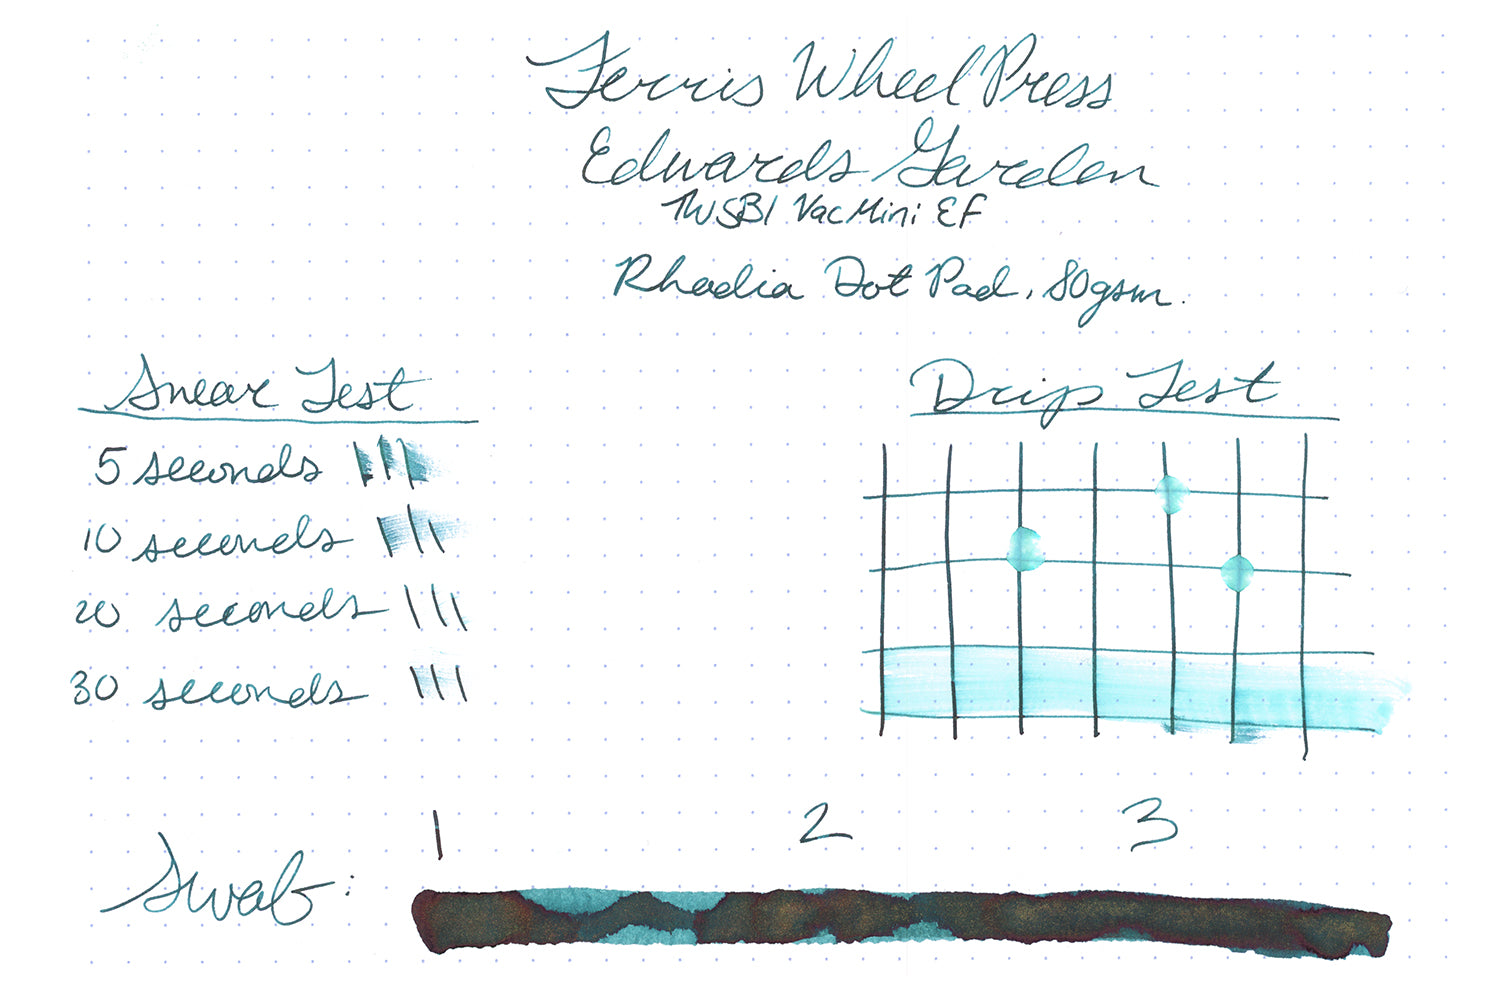 Ferris Wheel Press
Edwards Garden
TWSBI Vac Mini EF
Rhodia Dot Pad, 80gsm.
Smear Test
5 seconds
10 seconds
20 seconds
30 seconds
Drip Test
1 2 3
Swab: